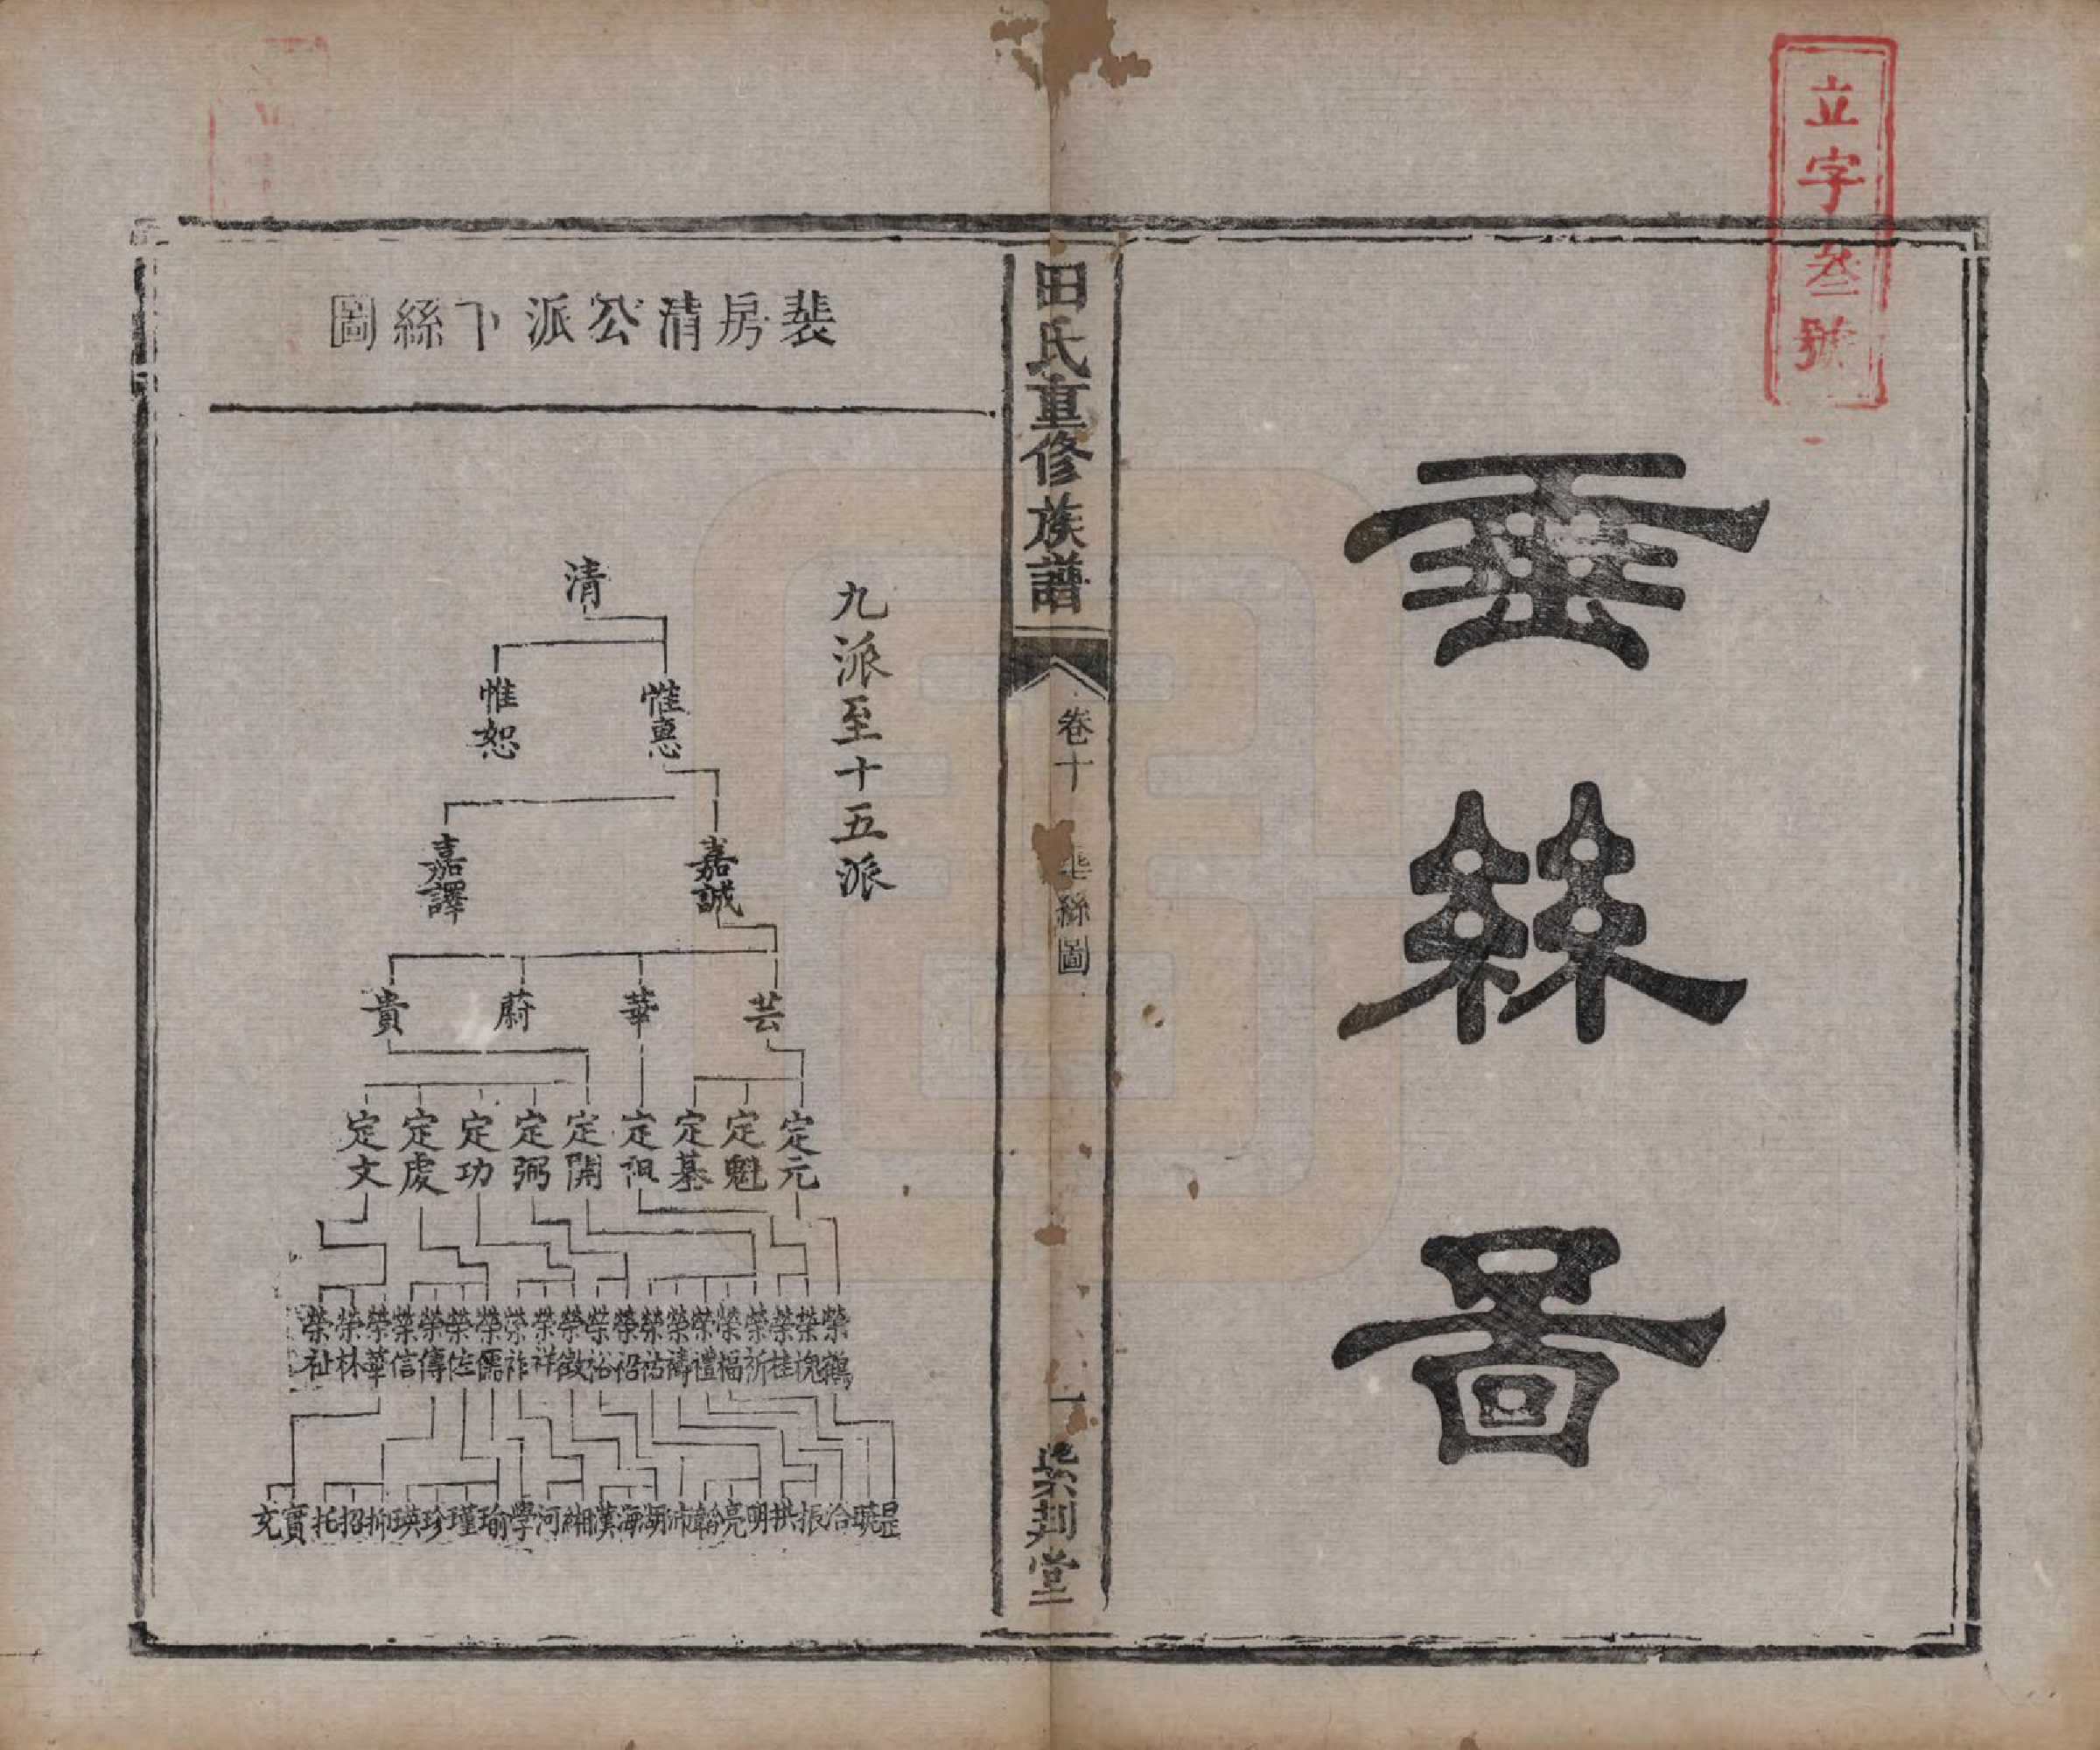 立字叁號
垂絲圖
田氏重修族譜
卷十
垂絲圖
一
紫荆堂
裴房清公派下絲圖
九派至十五派
清
惟惠 惟恕
嘉誠 嘉譯
芸 華 蔚 貴
定元 定魁 定基 定祖 定開 定弼 定功 定虔 定文
榮鶴 榮槐 榮桂 榮祈 榮福 榮禮 榮禱 榮祜 榮祒 榮裕 榮徵 榮祥 榮祚 榮儒 榮佐 榮傳 榮信 榮華 榮林 榮祉
昆 瑛 洽 振 拱 明 亮 翰 沛 湖 海 漢 湘 河 學 瑜 瑾 珍 瑛 招 托 寳 充